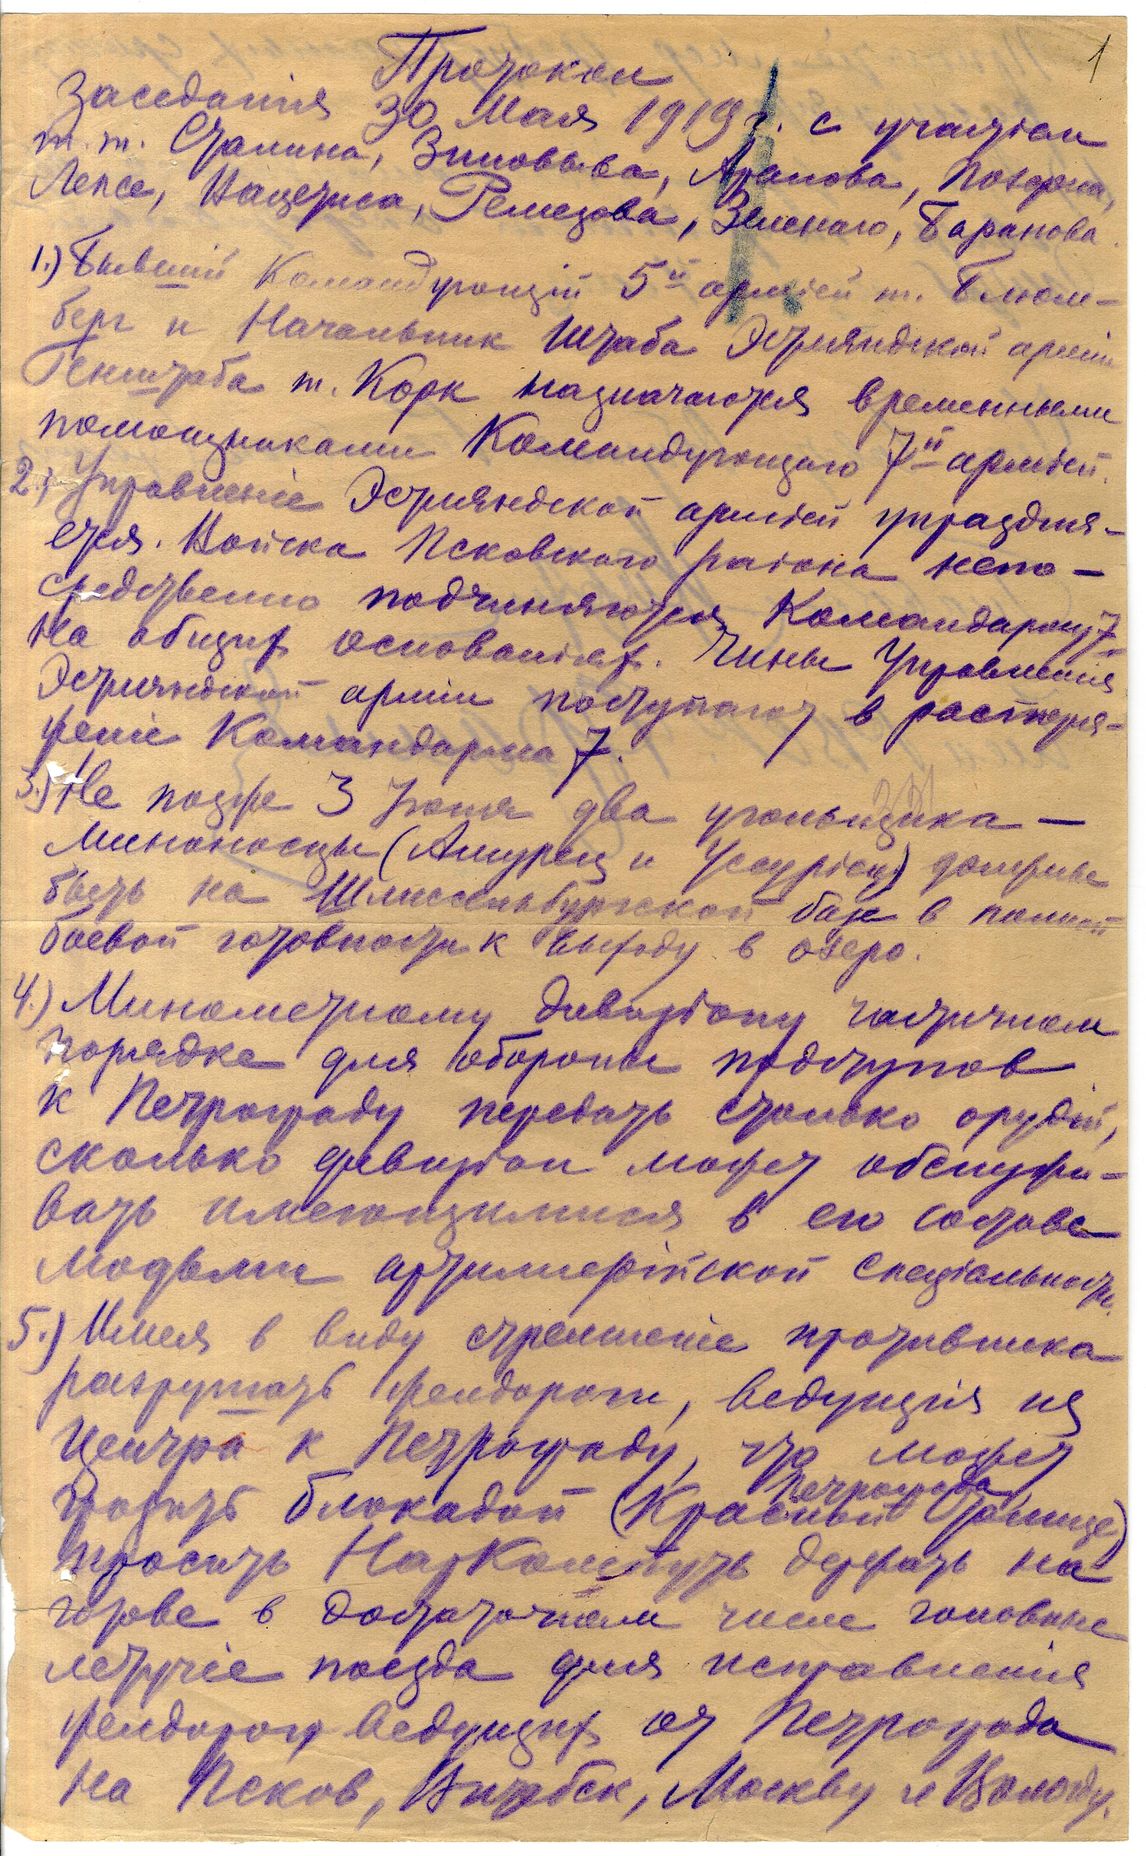 1
Протокол
Заседания 30 Мая 1919 г. с участiем
т.т. Сталина, Зиновьева, Аралова, Позерна,
Лепсе, Вацетиса, Ремезова, Зеленаго, Баранова.
1.) Бывший Командующiй 5й армiей т. Блюм-
берг и Начальник Штаба Эстляндской армiи
Генштаба т. Корк назначаются временными
помощниками Командующаго 7й армiей.
2.) Управленiе Эстляндской армiей упраздня-
ется. Войска Псковского района непо-
средственно подчиняются Командарму 7
на общих основанiях. Чины Управленiя
Эстляндской армiи поступают в распоря-
женiе Командарма 7.
3.) Не позже 3 Iюня два угольщика —
миноносцы (Амурец и Уссурiец) должны
быть на Шлиссельбургской базе в полной
боевой готовности к выходу в озеро.
4.) Минометному дивизiону частичном
порядке для обороны подступов
к Петрограду передать столько орудiй,
сколько дивизiон может обслужи-
вать имеющимися в его составе
людьми артиллерiйской спецiальности.
5.) Имея в виду стремленiе противника
разрушать желдороги, ведущiя из
Центра к Петрограду, что может
грозить блокадой Петрограда (Красный Столице)
просить НарКомпуть держать на
готове в достаточном числе головные
летучiе поезда для исправленiя
желдорог ведущих от Петрограда
на Псков, Витебск, Москву и Вологду.